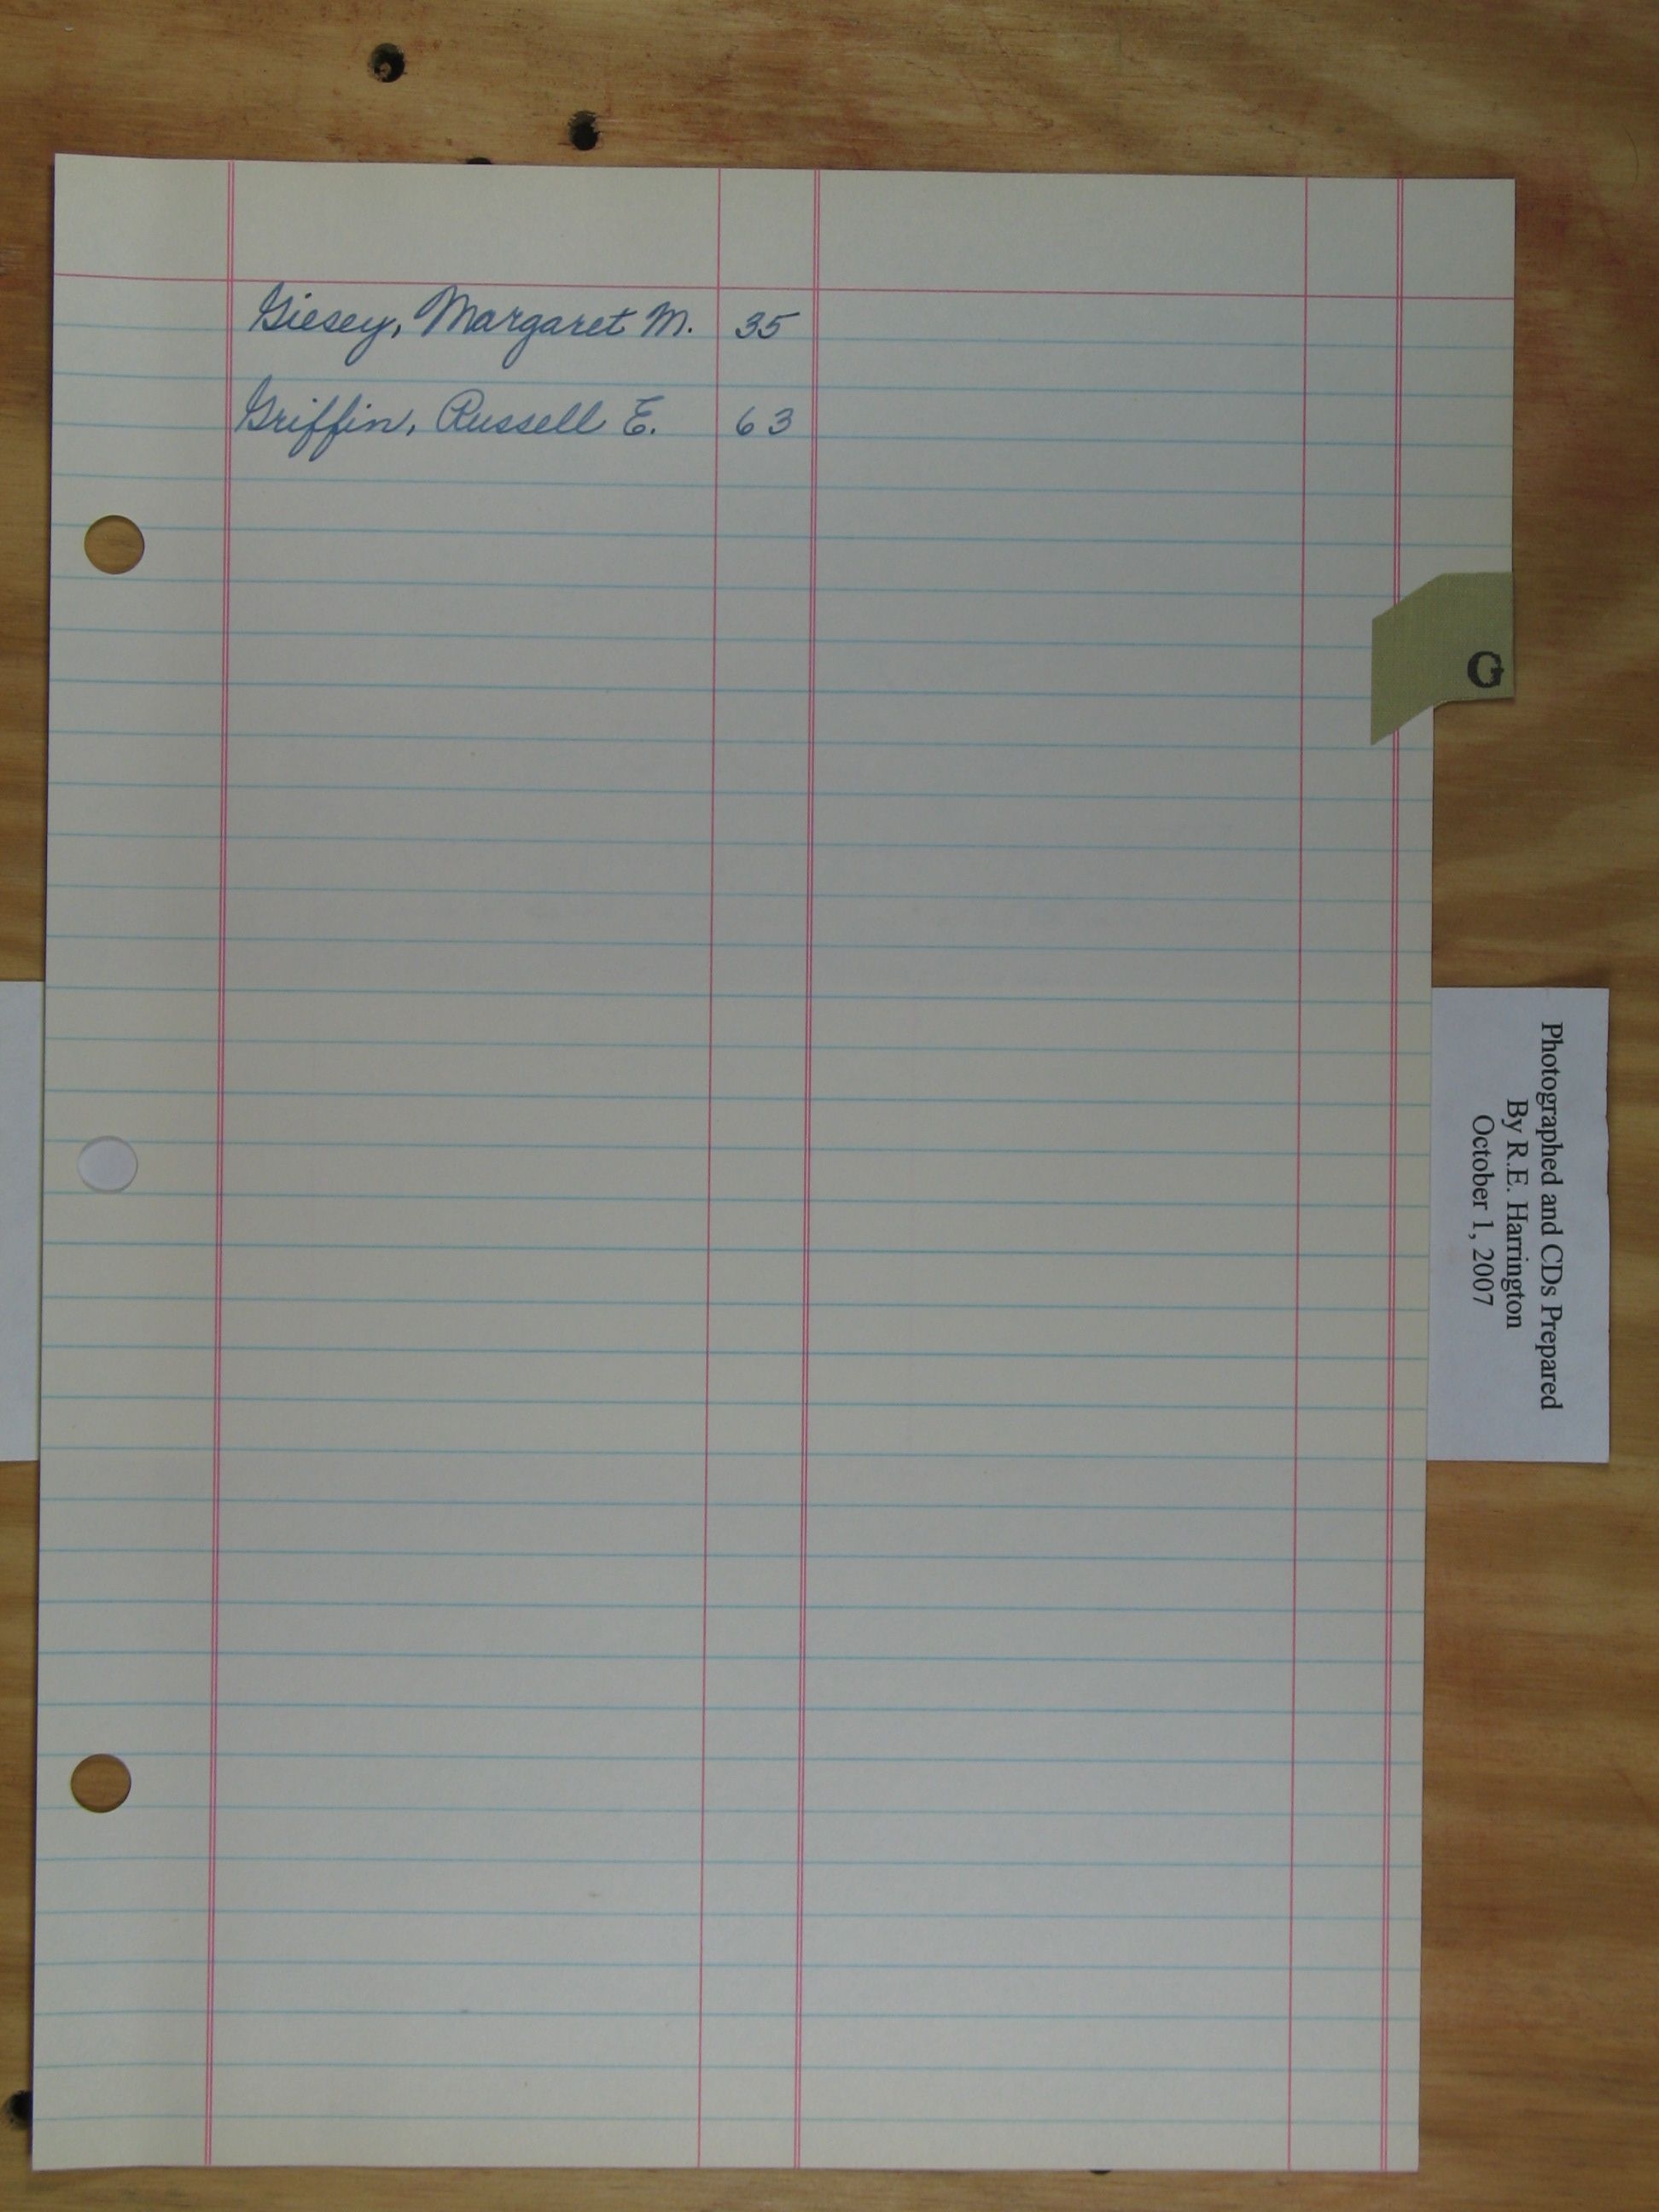 Giesey, Margaret M. 35
Griffin, Russell E. 63
G
Photographed and CDs Prepared
By R.E. Harrington
October 1, 2007